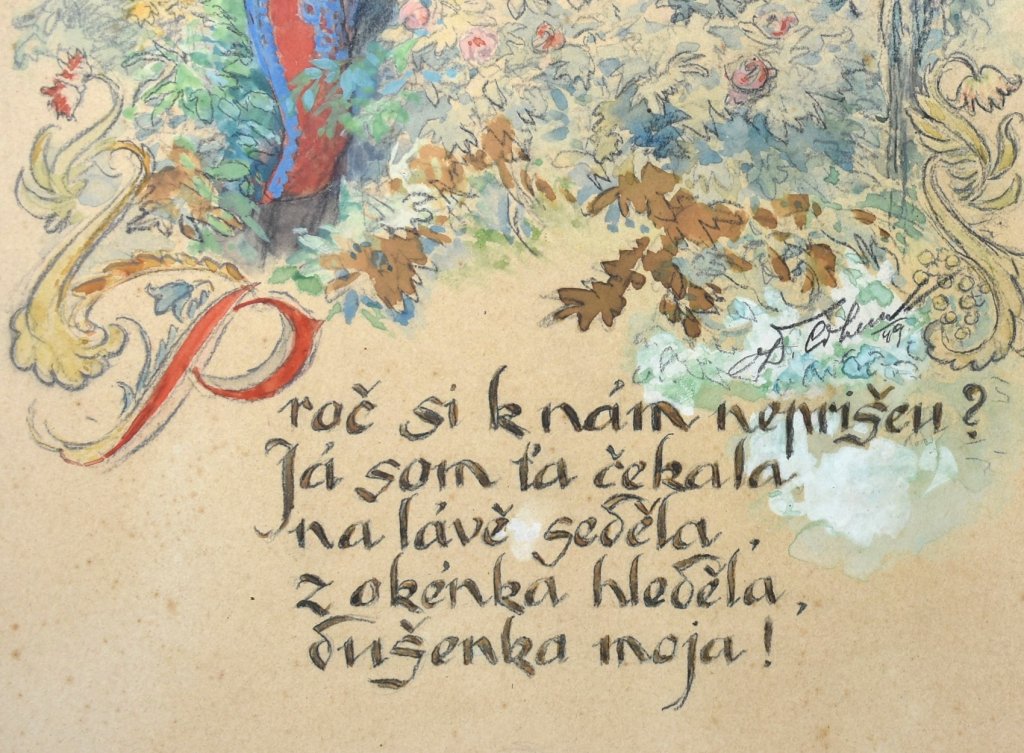 Proč si k nám neprišeu?
Já som ťa čekala
na lávě seděla,
z okénka hleděla,
dušenka moja!
49